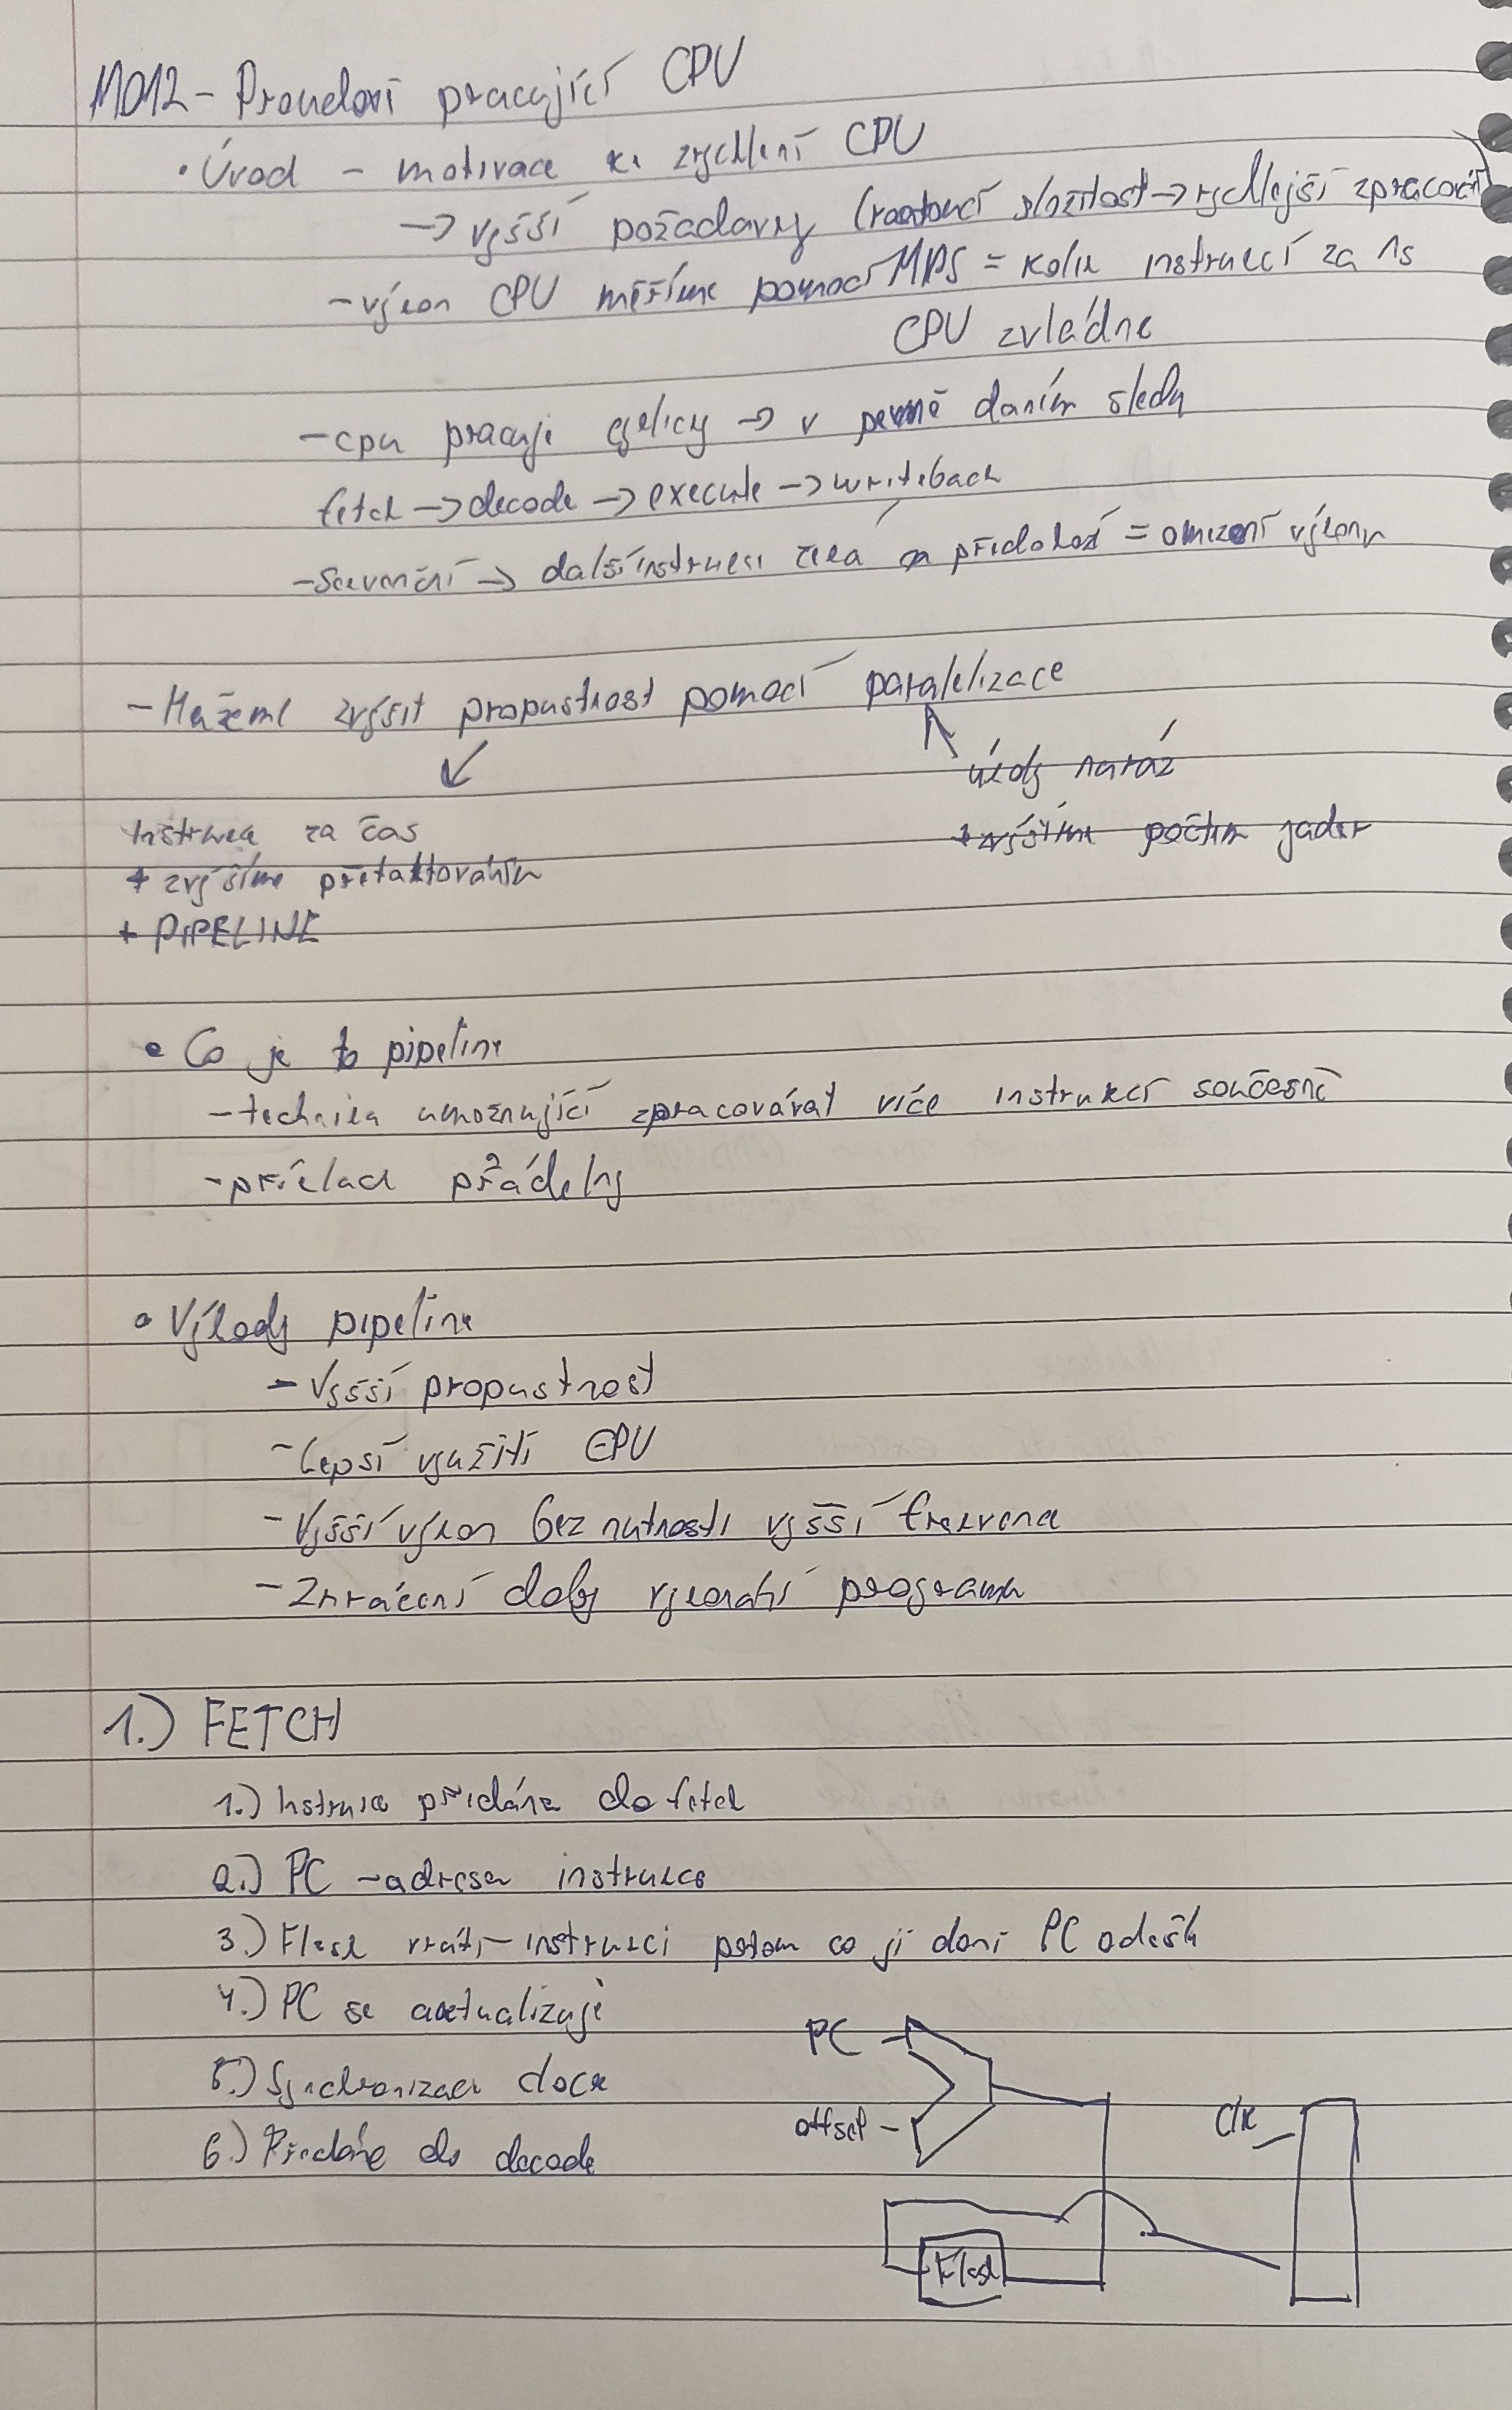 MO12 - Proudově pracující CPU
• Úvod - motivace ke zrychlení CPU
→ vyšší požadavky (rostoucí složitost → rychlejší zpracování
- výkon CPU měříme pomocí MIPS = kolik instrukcí za 1s
CPU zvládne
- cpu pracuje cyklicky → v pevně daném sledu
fetch → decode → execute → writeback
- Sekvenční → další instrukci čeká na předchozí = omezení výkonu
- Můžeme zvýšit propustnost pomocí paralelizace
úkoly naráz
Instrukce za čas
+ zvýšíme počtem jader
+ zvýšíme přetaktováním
+ PIPELINE
• Co je to pipeline
- technika umožnující zpracovávat více instrukcí současně
- příklad přádelny
• Výhody pipeline
- Vyšší propustnost
- Lepší využití CPU
- Vyšší výkon bez nutnosti vyšší frekvence
- Zkrácení doby vykonání programu
1.) FETCH
1.) Instrukce předána do fetch
2.) PC - adresa instrukce
3.) Flash vrátí instrukci potom co jí dání PC odešle
4.) PC se aktualizuje
PC
5.) Synchronizace clock
offset
Clk
6.) Předáne do decode
Flash